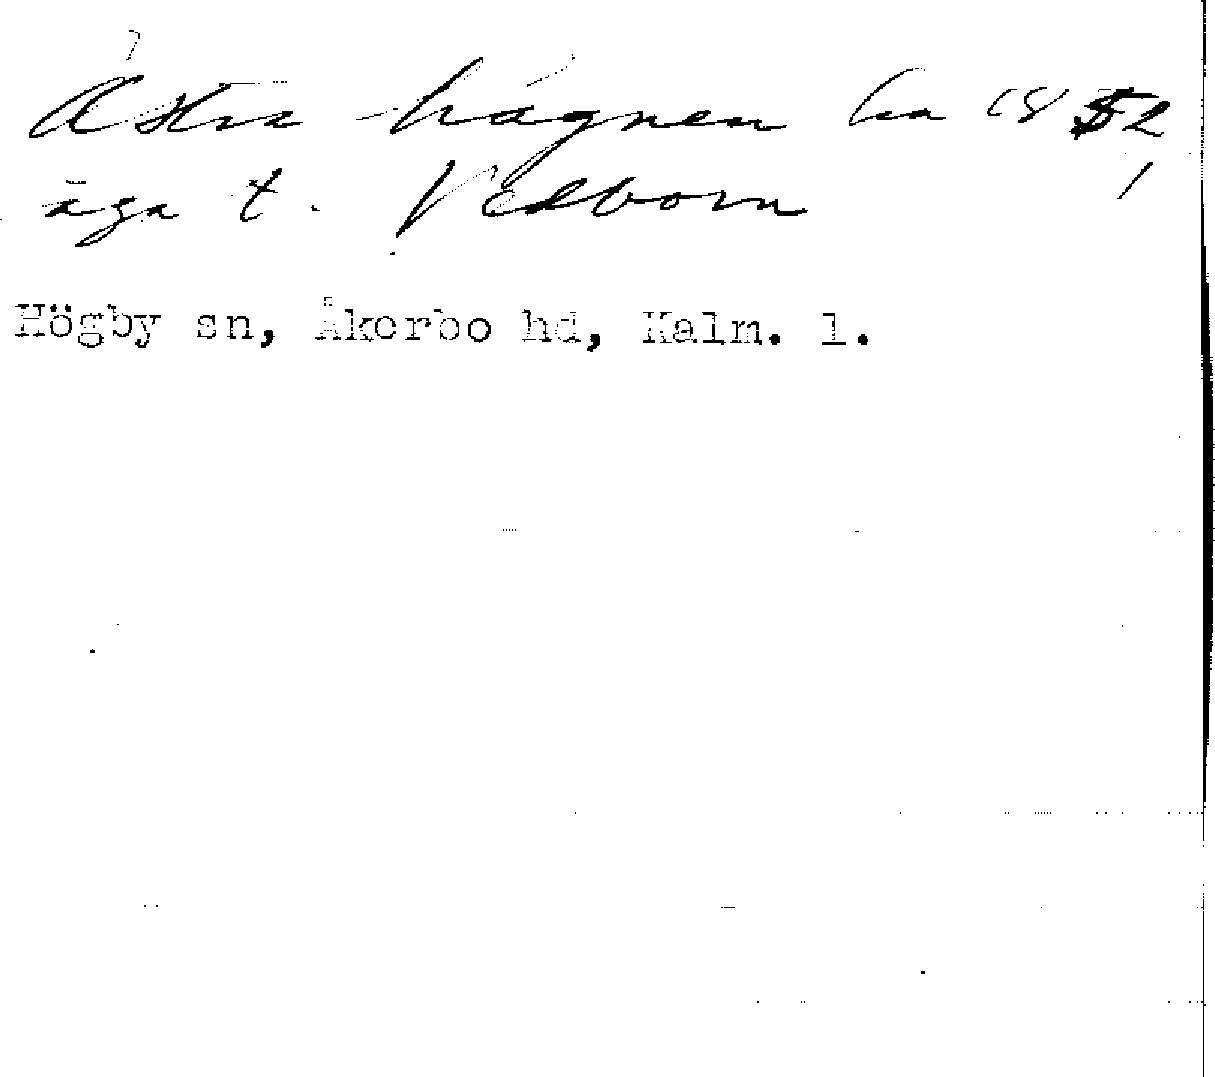 Åstra hägnen ha 1852
äga t. Vedborm
Högby sn, Åkerbo hd, Kalm. l.